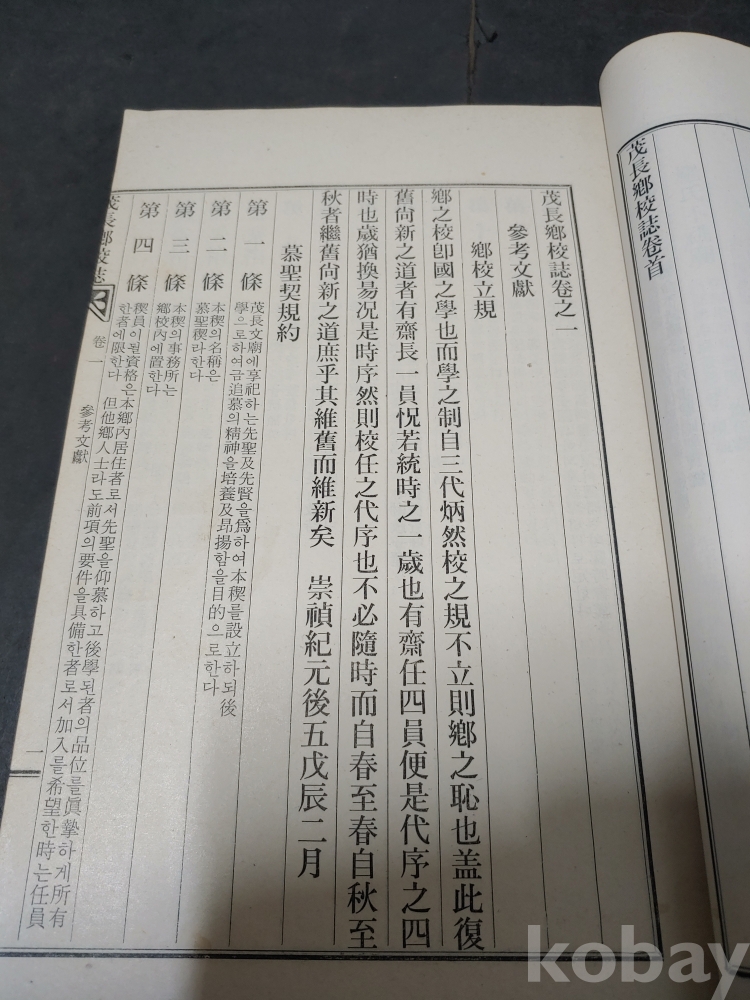 茂長鄕校誌卷首
茂長鄕校誌卷之一
參考文獻
鄕校立規
鄕之校卽國之學也而學之制自三代炳然校之規不立則鄕之恥也盖此復
舊尙新之道者有齋長一員怳若統時之一歲也有齋任四員便是代序之四
時也歲猶換昜况是時序然則校任之代序也不必隨時而自春至春自秋至
秋者繼舊尙新之道庶乎其維舊而維新矣 崇禎紀元後五戊辰二月
慕聖契規約
第一條 茂長文廟에享祀하는先聖及先賢을爲하여本稧를設立하되後
學으로하여금追慕의精神을培養及昻揚함을目的으로한다
第二條 本稧의名稱은
慕聖稧라한다
第三條 本稧의事務所는
鄕校內에置한다
第四條 稧員이될資格은本鄕內居住者로서先聖을仰慕하고後學된者의品位를眞摯하게所有
한者에限한다 但他鄕人士라도前項의要件을具備한者로서加入를希望한時는任員
茂長鄕校誌 卷一 參考文獻 一
kobay